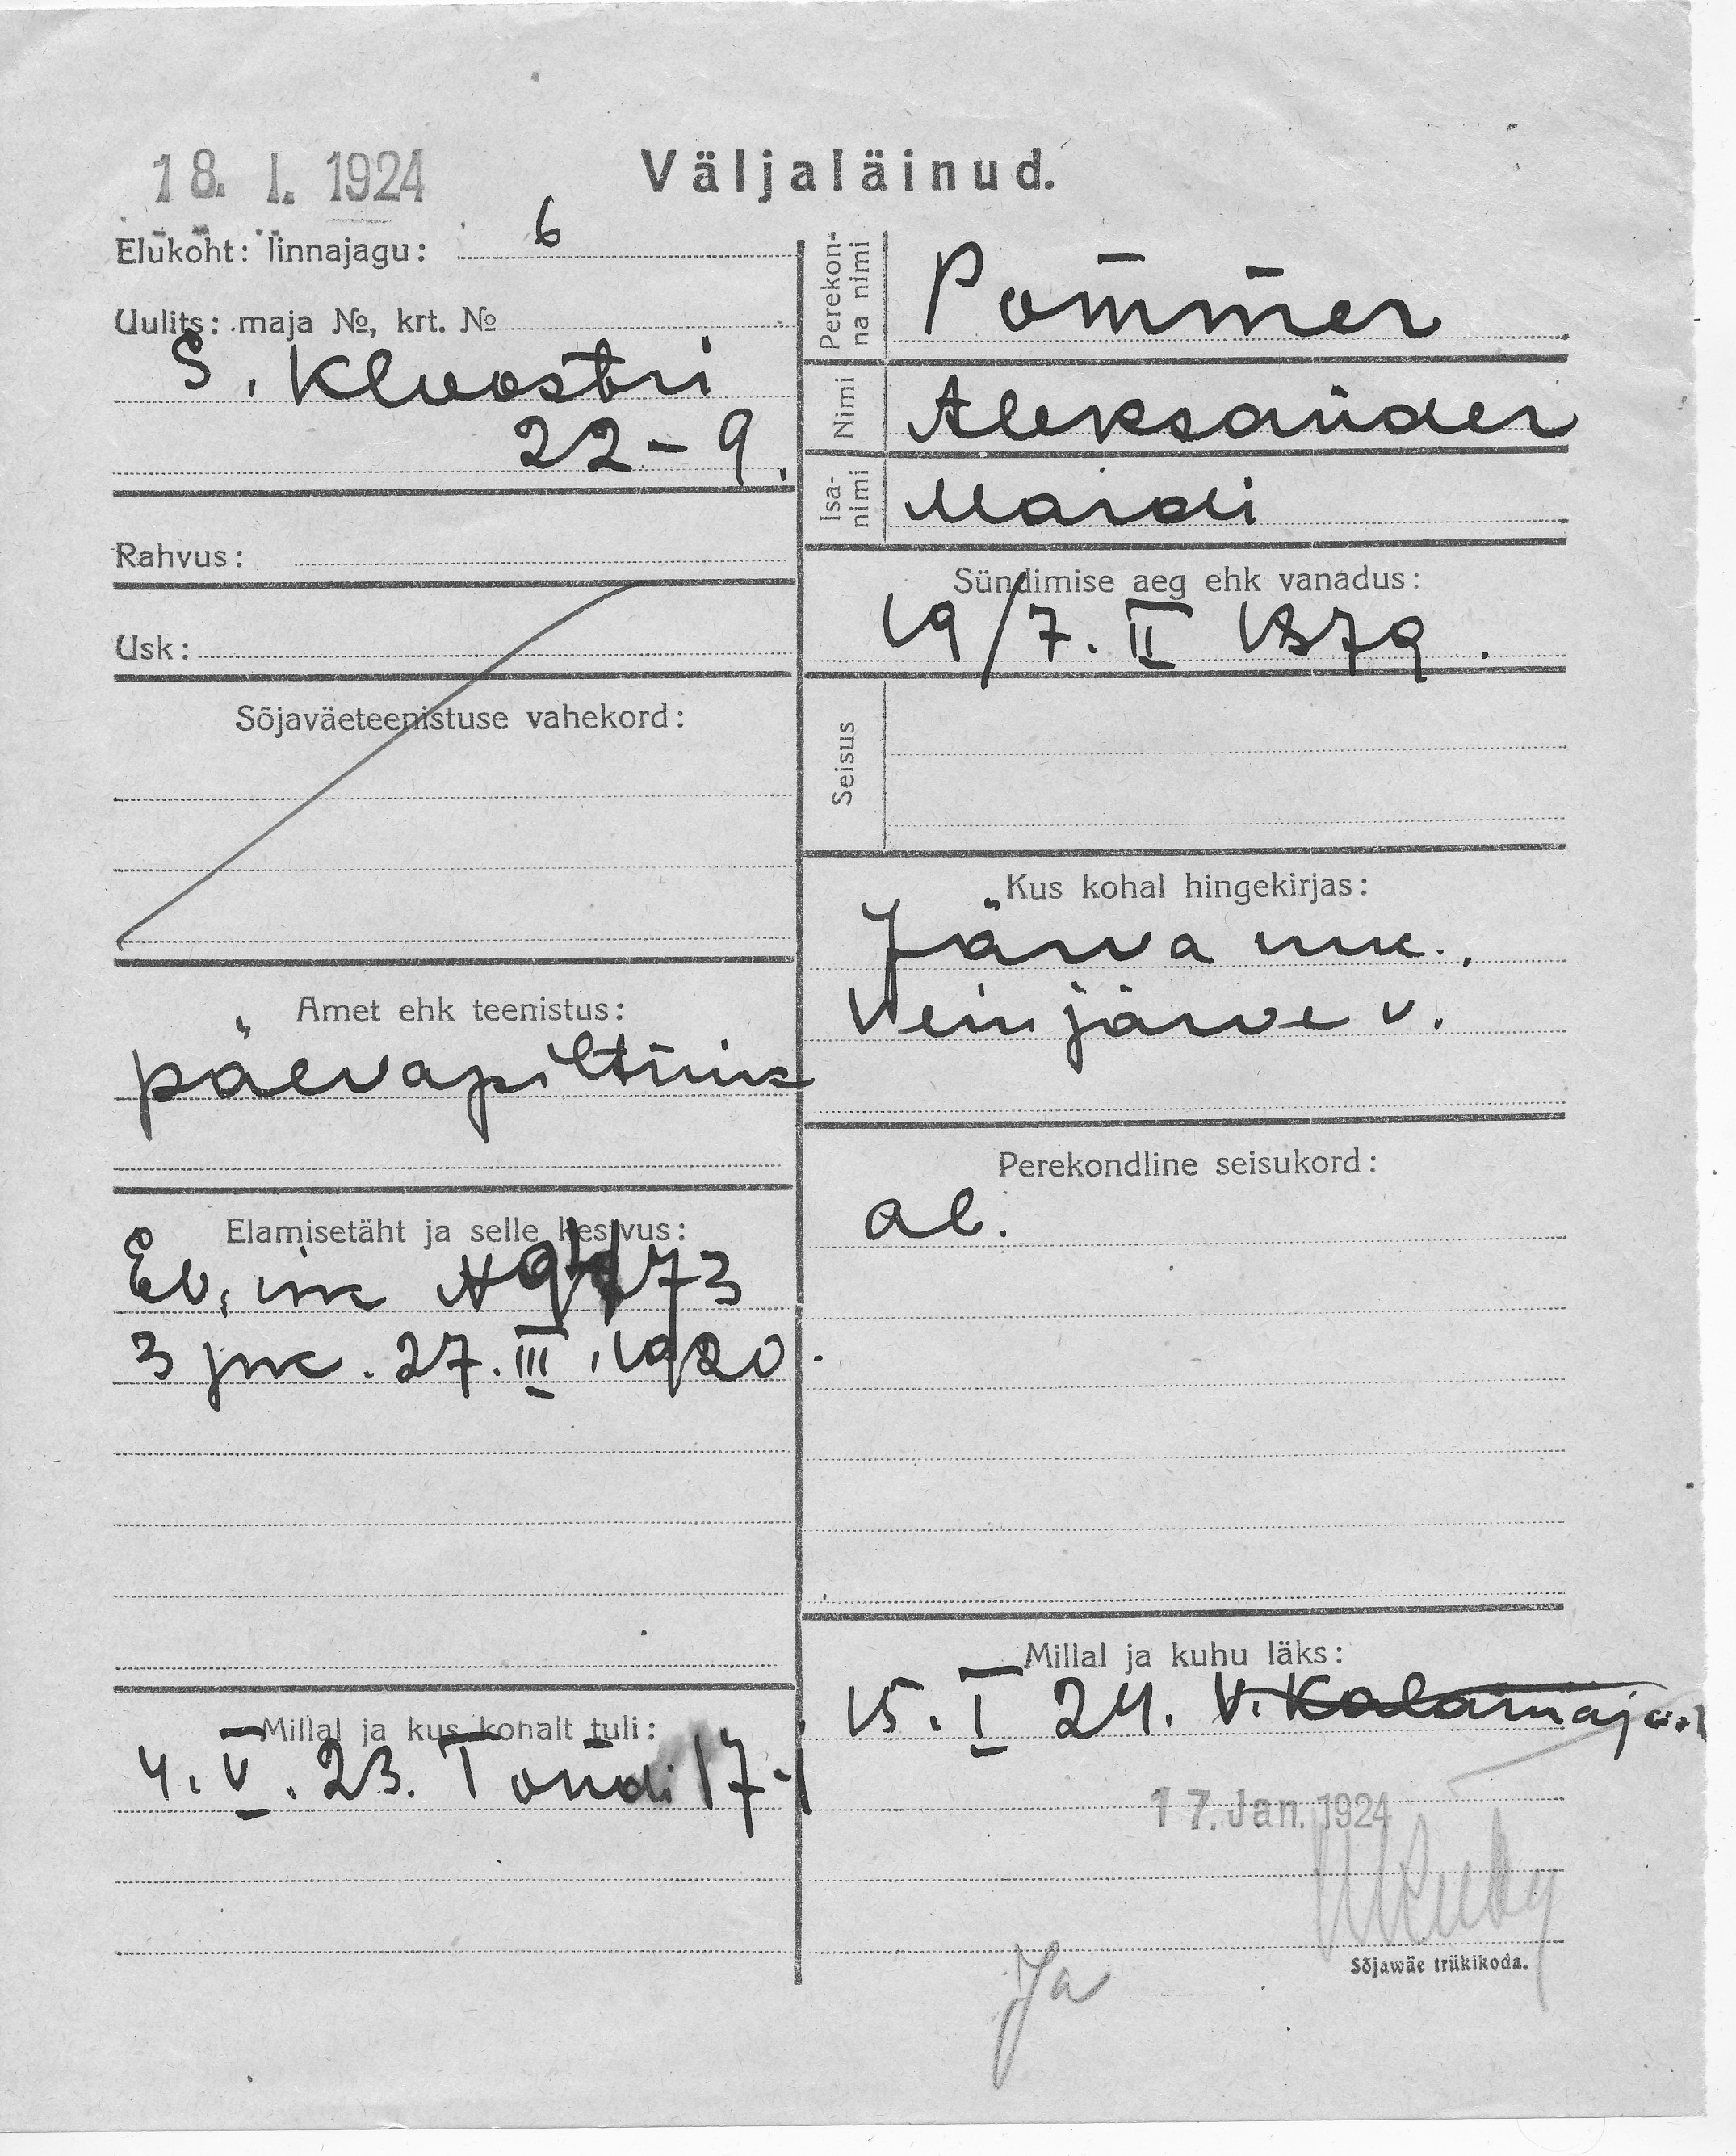 18. I. 1924
Väljaläinud.
Elukoht: linnajagu: 6
Uulits: maja №, krt. №
S. Kloostri
22-9.
Rahvus:
Usk:
Sõjaväeteenistuse vahekord:
Amet ehk teenistus:
päevapiltnik
Elamisetäht ja selle kestvus:
73
3 jsk. 27. III. 1920.
Millal ja kus kohalt tuli:
4. V. 23. Tondi 17-1
Perekon-
na nimi
Pommer
Nimi
Aleksander
Isa-
nimi
Mardi
Sündimise aeg ehk vanadus:
19/7. II 1879.
Seisus
Kus kohal hingekirjas:
Järva mk.,
Veinjärve v.
Perekondline seisukord:
ab.
Millal ja kuhu läks:
15. I 24. V. Kalamaja
17. Jan. 1924
Ja
Sõjawäe trükikoda.